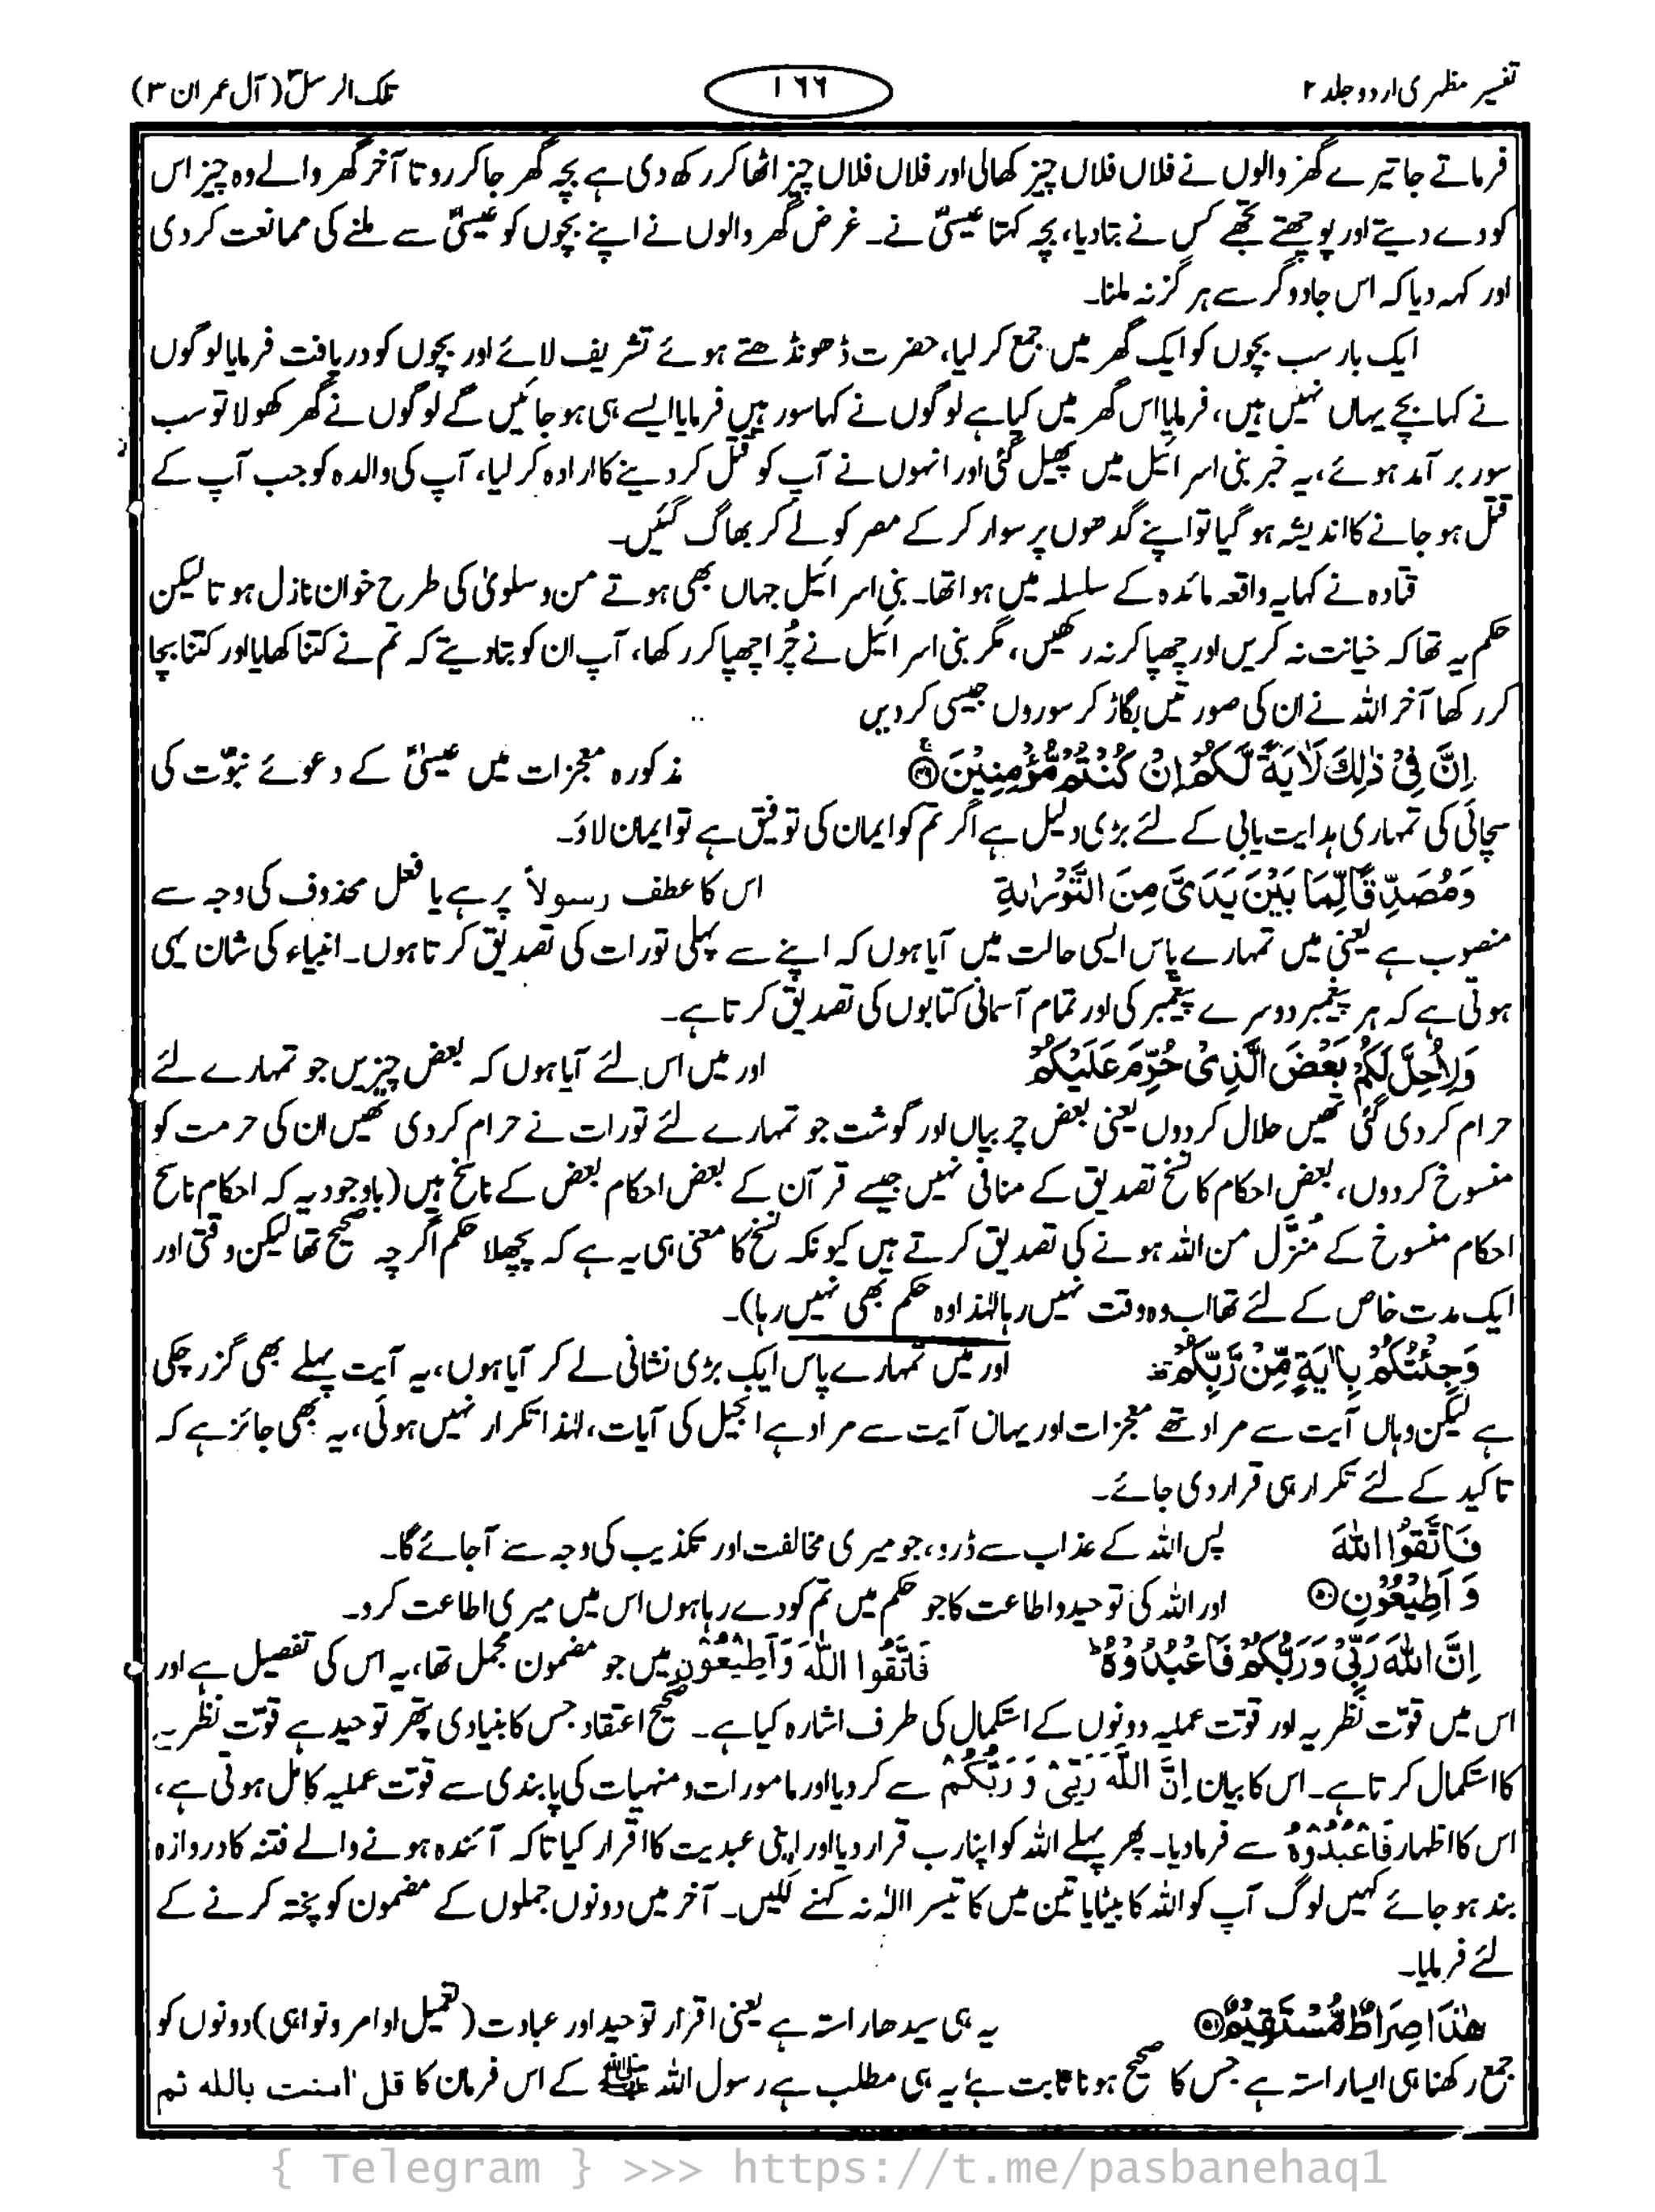 تفسیر مظہری اردو جلد ۲
۱۶۶
تلک الرسل (آل عمران ۳)
فرماتے جا تیرے گھر والوں نے فلاں فلاں چیز کھالی اور فلاں فلاں چیز اٹھا کر رکھ دی ہے بچہ گھر جا کر روتا آخر گھر والے وہ چیز اس
کو دے دیتے اور پوچھتے تجھے کس نے بتادیا، بچہ کہتا عیسیٰؑ نے۔ غرض گھر والوں نے اپنے بچوں کو عیسیٰؑ سے ملنے کی ممانعت کردی
اور کہہ دیا کہ اس جادوگر سے ہرگز نہ ملنا۔
ایک بار سب بچوں کو ایک گھر میں جمع کر لیا، حضرت ڈھونڈھتے ہوئے تشریف لائے اور بچوں کو دریافت فرمایا لوگوں
نے کہا بچے یہاں نہیں ہیں، فرمایا اس گھر میں کیا ہے لوگوں نے کہا سور ہیں فرمایا ایسے ہی ہو جائیں گے لوگوں نے گھر کھولا تو سب
سور بر آمد ہوئے، یہ خبر بنی اسرائیل میں پھیل گئی اور انہوں نے آپ کو قتل کر دینے کا ارادہ کر لیا، آپ کی والدہ کو جب آپ کے
قتل ہو جانے کا اندیشہ ہو گیا تو اپنے گدھوں پر سوار کر کے مصر کو لے کر بھاگ گئیں۔
قتادہ نے کہا یہ واقعہ مائدہ کے سلسلہ میں ہوا تھا۔ بنی اسرائیل جہاں بھی ہوتے من و سلویٰ کی طرح خوان نازل ہوتا لیکن
حکم یہ تھا کہ خیانت نہ کریں اور چھپا کر نہ رکھیں، مگر بنی اسرائیل نے چُرا چھپا کر رکھا، آپ ان کو بتادیتے کہ تم نے کتنا کھایا اور کتنا بچا
کر رکھا آخر اللہ نے ان کی صورتیں بگاڑ کر سوروں جیسی کردیں
اِنَّ فِیْ ذٰلِكَ لَاٰیَةً لَّكُمْ اِنْ كُنْتُمْ مُّؤْمِنِیْنَ ۴۹ مذکورہ معجزات میں عیسیٰؑ کے دعوئے نبوّت کی
سچائی کی تمہاری ہدایت یابی کے لئے بڑی دلیل ہے اگر تم کو ایمان کی توفیق ہے تو ایمان لاؤ۔
وَمُصَدِّقًا لِّمَا بَیْنَ یَدَیَّ مِنَ التَّوْرٰىةِ اس کا عطف رسولاً پر ہے یا فعل محذوف کی وجہ سے
منصوب ہے یعنی میں تمہارے پاس ایسی حالت میں آیا ہوں کہ اپنے سے پہلی تورات کی تصدیق کرتا ہوں۔ انبیاء کی شان یہی
ہوتی ہے کہ ہر پیغمبر دوسرے پیغمبر کی اور تمام آسمانی کتابوں کی تصدیق کرتا ہے۔
وَلِاُحِلَّ لَكُمْ بَعْضَ الَّذِیْ حُرِّمَ عَلَیْكُمْ اور میں اس لئے آیا ہوں کہ بعض چیزیں جو تمہارے لئے
حرام کردی گئی تھیں حلال کردوں یعنی بعض چربیاں اور گوشت جو تمہارے لئے تورات نے حرام کردی تھیں ان کی حرمت کو
منسوخ کردوں، بعض احکام کا نسخ تصدیق کے منافی نہیں جیسے قرآن کے بعض احکام بعض کے ناسخ ہیں (باوجودیہ کہ احکام ناسخ
احکام منسوخ کے مُنزَّل من اللہ ہونے کی تصدیق کرتے ہیں کیونکہ نسخ کا معنی ہی یہ ہے کہ پچھلا حکم اگرچہ صحیح تھا لیکن وقتی اور
ایک مدت خاص کے لئے تھا اب وہ وقت نہیں رہا لہٰذا وہ حکم بھی نہیں رہا)۔
وَجِئْتُكُمْ بِاٰیَةٍ مِّنْ رَّبِّكُمْ اور میں تمہارے پاس ایک بڑی نشانی لے کر آیا ہوں، یہ آیت پہلے بھی گزر چکی
ہے لیکن وہاں آیت سے مراد تھے معجزات اور یہاں آیت سے مراد ہے انجیل کی آیات، لہٰذا تکرار نہیں ہوئی، یہ بھی جائز ہے کہ
تاکید کے لئے تکرار ہی قرار دی جائے۔
فَاتَّقُوا اللّٰهَ پس اللہ کے عذاب سے ڈرو، جو میری مخالفت اور تکذیب کی وجہ سے آجائے گا۔
وَاَطِیْعُوْنِ ۵۰ اور اللہ کی توحید و اطاعت کا جو حکم میں تم کو دے رہا ہوں اس میں میری اطاعت کرو۔
اِنَّ اللّٰهَ رَبِّیْ وَرَبُّكُمْ فَاعْبُدُوْهُ ؕ فَاتَّقُوا اللّٰهَ وَاَطِیْعُوْنِ میں جو مضمون مجمل تھا، یہ اس کی تفصیل ہے اور
اس میں قوّت نظریہ اور قوّت عملیہ دونوں کے استکمال کی طرف اشارہ کیا ہے۔ صحیح اعتقاد جس کا بنیادی پتھر توحید ہے قوّت نظریہ
کا استکمال کرتا ہے۔ اس کا بیان اِنَّ اللّٰهَ رَبِّیْ وَ رَبُّكُمْ سے کردیا اور مامورات و منہیات کی پابندی سے قوّت عملیہ کامل ہوتی ہے،
اس کا اظہار فَاعْبُدُوْهُ سے فرمادیا۔ پھر پہلے اللہ کو اپنا رب قرار دیا اور اپنی عبدیت کا اقرار کیا تاکہ آئندہ ہونے والے فتنہ کا دروازہ
بند ہو جائے کہیں لوگ آپ کو اللہ کا بیٹا یا تین میں کا تیسرا الٰہ نہ کہنے لگیں۔ آخر میں دونوں جملوں کے مضمون کو پختہ کرنے کے
لئے فرمایا۔
هٰذَا صِرَاطٌ مُّسْتَقِیْمٌ ۵۱ یہ ہی سیدھا راستہ ہے یعنی اقرار توحید اور عبادت (تعمیل اوامر و نواہی) دونوں کو
جمع رکھنا ہی ایسا راستہ ہے جس کا صحیح ہونا ثابت ہے یہ ہی مطلب ہے رسول اللہ ﷺ کے اس فرمان کا قل اٰمنت باللہ ثم
{ Telegram } >>> https://t.me/pasbanehaq1